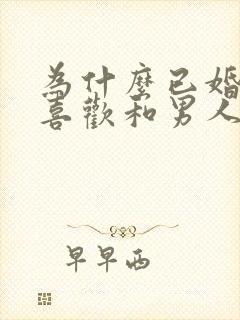 為什麼已婚
喜歡和男人
早早西